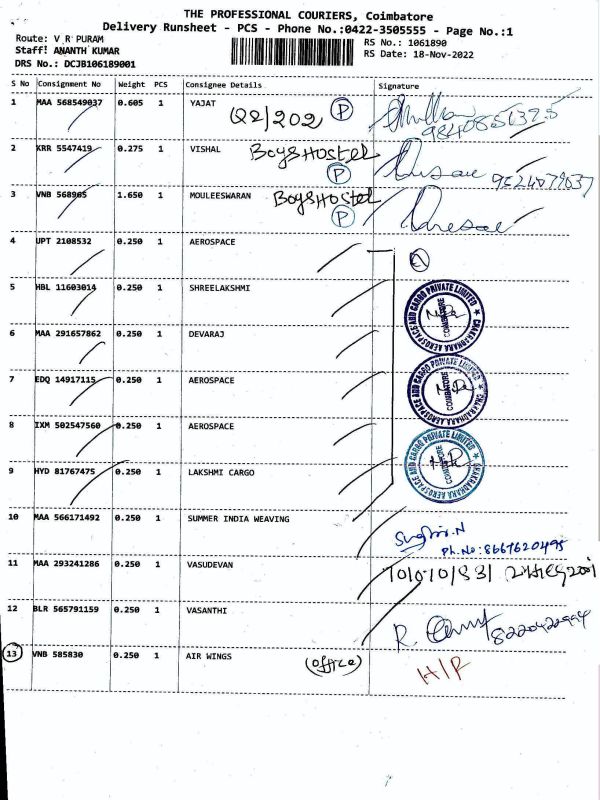 THE PROFESSIONAL COURIERS, Coimbatore
Delivery Runsheet - PCS - Phone No.:0422-3505555 - Page No.:1
Route: V R PURAM
RS No.: 1061890
Staff! ANANTH KUMAR
RS Date: 18-Nov-2022
DRS No.: DCJB106189001
S No Consignment No Weight PCS Consignee Details Signature
1 MAA 568549037 0.605 1 YAJAT Q2/202 P
2 KRR 5547419 0.275 1 VISHAL Boys Hostel P
3 VNB 568965 1.650 1 MOULEESWARAN Boys Hostel P
4 UPT 2108532 0.250 1 AEROSPACE
5 HBL 11603014 0.250 1 SHREELAKSHMI
6 MAA 291657862 0.250 1 DEVARAJ
7 EDQ 14917115 0.250 1 AEROSPACE
8 IXM 502547560 0.250 1 AEROSPACE
9 HYD 81767475 0.250 1 LAKSHMI CARGO
CHAKRADHARA AEROSPACE AND CARGO PRIVATE LIMITED
COIMBATORE
CHAKRADHARA AEROSPACE AND CARGO PRIVATE LIMITED
COIMBATORE
CHAKRADHARA AEROSPACE AND CARGO PRIVATE LIMITED
COIMBATORE
10 MAA 566171492 0.250 1 SUMMER INDIA WEAVING
Ph.No: 8667620495
11 MAA 293241286 0.250 1 VASUDEVAN
12 BLR 565791159 0.250 1 VASANTHI
13 VNB 585830 0.250 1 AIR WINGS (office) H/R